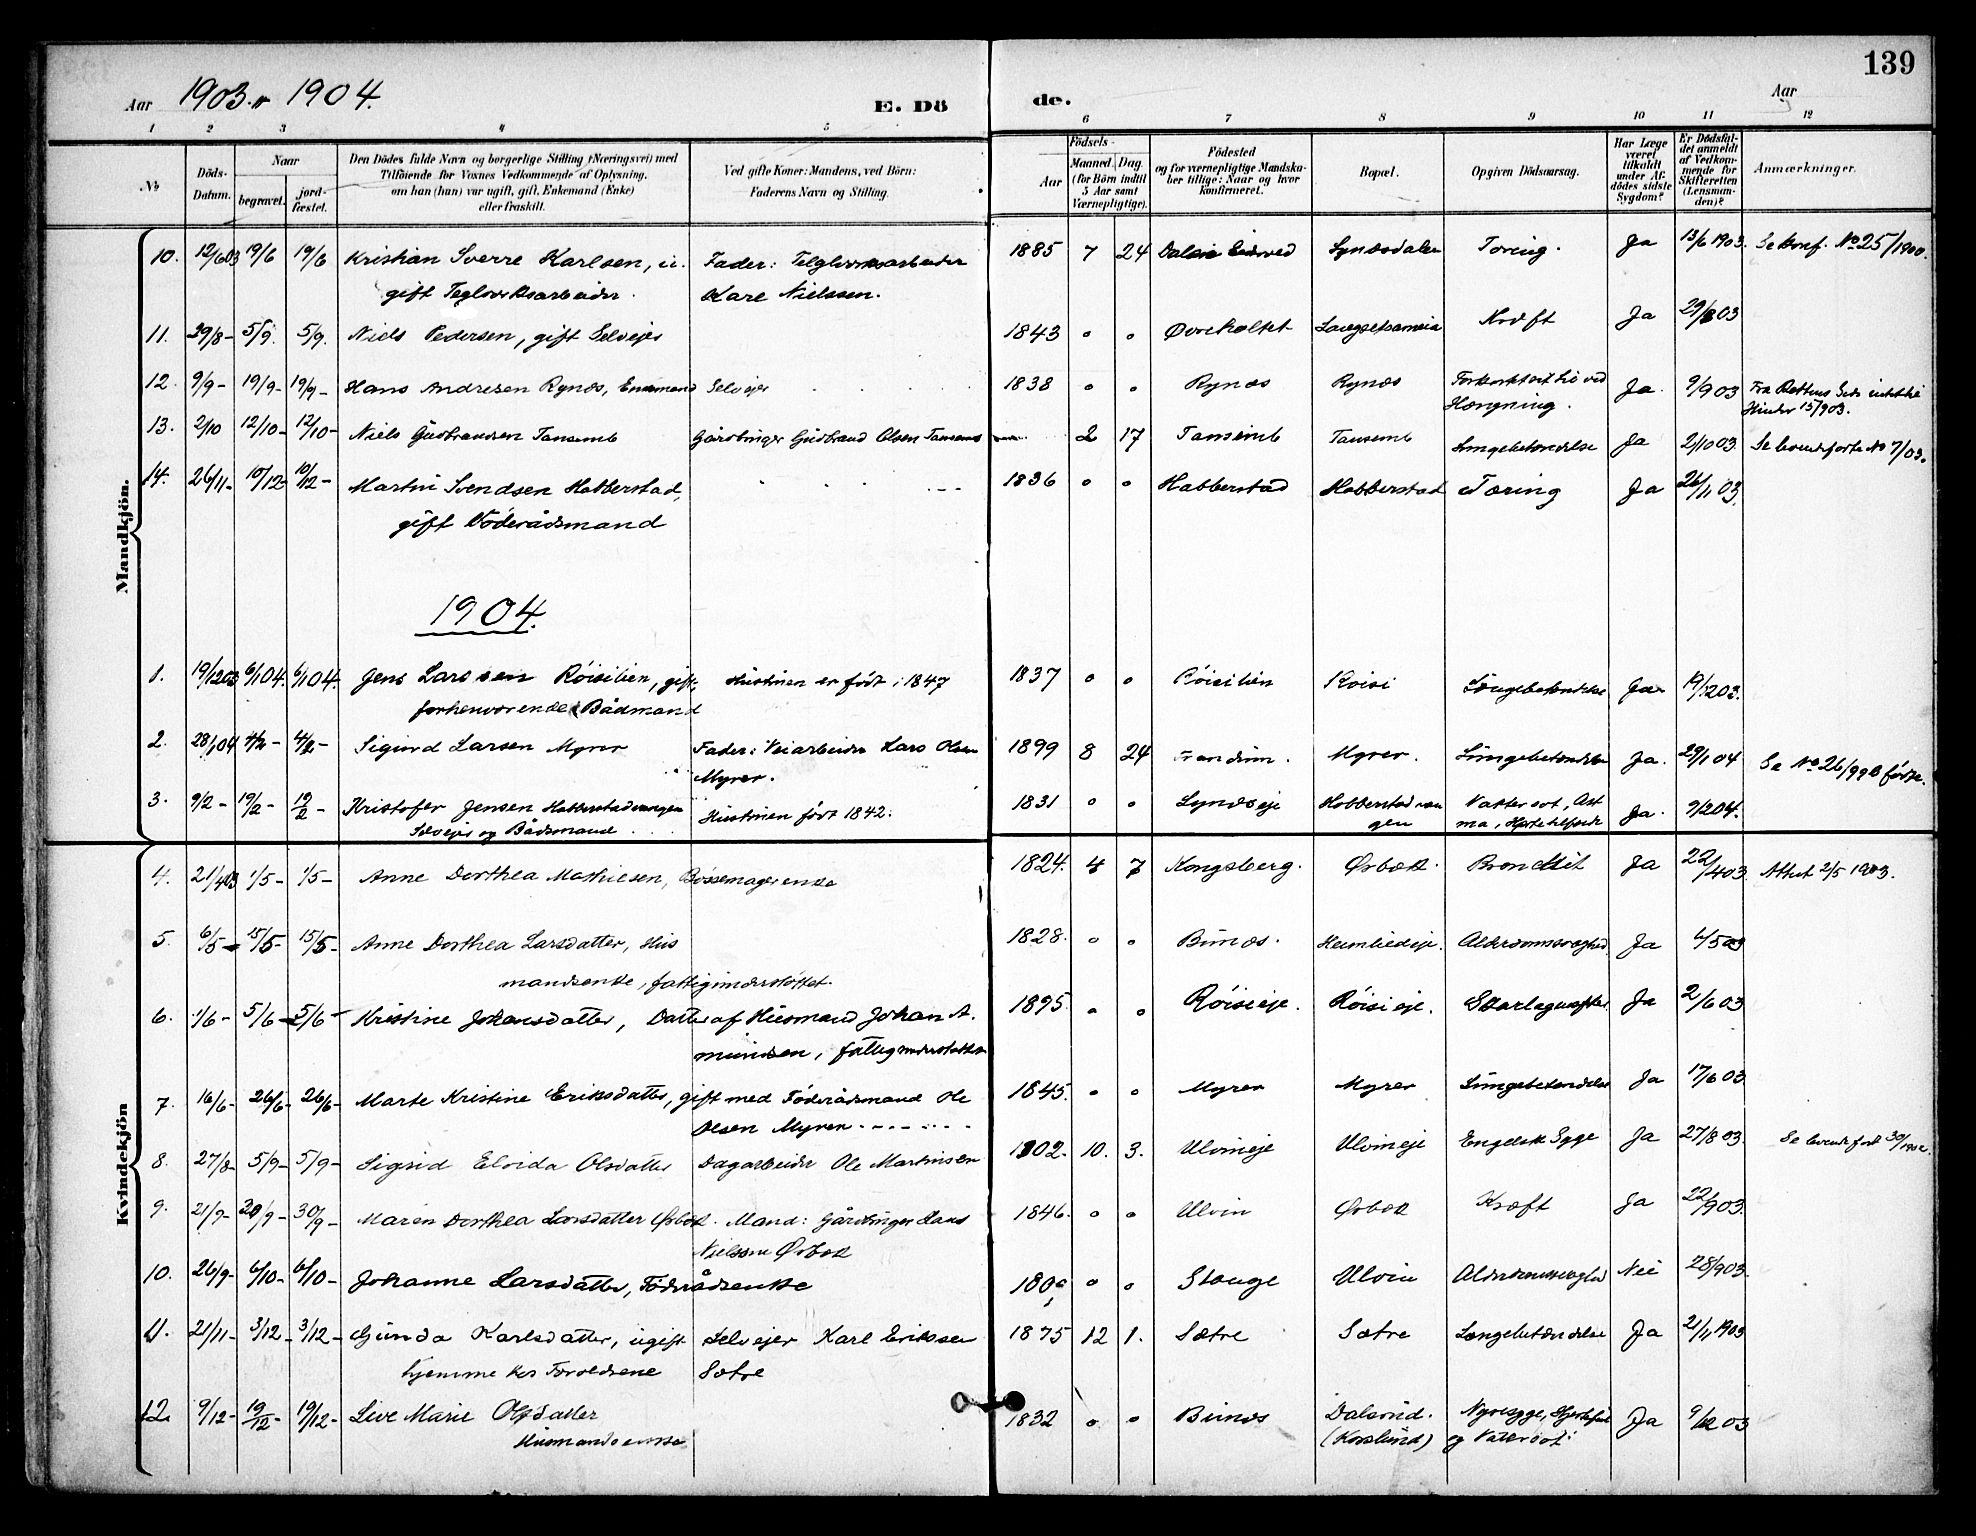 139
Aar 1903 1904.
E. Dö
de.
Aar
1 2 3 4 5 6 7 8 9 10 11 12
No
Döds-Datum.
Naar
begravet.
jord-fæstet.
Den Dödes fulde Navn og borgerlige Stilling (Næringsvei) med
Tilföiende for Voxnes Vedkommende af Oplysning,
om han (hun) var ugift, gift, Enkemand (Enke)
eller fraskilt.
Ved gifte Koner: Mandens, ved Börn:
Faderens Navn og Stilling.
Födsels-
Aar
Maaned. Dag.
(for Börn indtil
5 Aar samt
Værnepligtige).
Födested
og for værnepligtige Mandska-
ber tillige: Naar og hvor
konfirmeret.
Bopæl.
Opgiven Dödsaarsag.
Har Læge
været
tilkaldt
under Af-
dödes sidste
Sygdom?
Er Dödsfal-
det anmeldt
af Vedkom-
mende for
Skifteretten
(Lensman-
den)?
Anmærkninger.
Mandkjön.
10. 12/6 03 19/6 19/6 Kristian Sverre Karlsen, u- Fader: Teglverksarbeider 1885 7 24 Eidsvold Tæring. Ja 13/6 1903. Se Konf. No 25/1900.
gift Teglverksarbeider. Kare Nielssen.
11. 29/8- 5/9. 5/9. Niels Pedersen, gift Selveier 1843 " " Øvreholtet Kræft Ja 29/8 03
12. 9/9- 19/9- 19/9- Hans Andresen Rynæs, Enkemand Selveier 1838 " " Rynæs Rynæs ved Ja. 9/9 03 Fra Rettens Side intet til
Hængning. Hinder 15/9 03.
13. 2/10 12/10- 12/10- Niels Gudbrandsen Tansemb Gårdbruger Gudbrand Olsen Tansemb 2 17 Tansemb Tansemb Lungebetændelse Ja 2/10 03. Se levendefødte No 7/03.
14. 26/11- 10/12- 10/12- Martin Svendsen Habberstad, 1836 " " Habberstad Habberstad Tæring Ja 26/11 03.
gift Föderådsmand
1904.
1. 19/12 03 6/1 04. 6/1 04. Jens Larssen Röisilien, gift, Hustruen er född i 1847 1837 " " Röisilien Röisi Lungebetændelse Ja 19/12 03.
forhenværende Bådmand
2. 28/1 04 4/2- 4/2- Sigurd Larsen Myrer Fader: Veiarbeider Lars Olsen 1899 8 24 Trandum. Myrer. Lungebetændelse Ja. 29/1 04 Se No 26/99 B födte.
Myrer.
3. 9/2- 19/2- 19/2- Kristofer Jensen Habberstadvangen Hustruen född 1842. 1831 " " Lynæseje Habberstadvan Vattersot, Ast Ja. 9/2 04.
Selveier og Bådsmand gen ma, Hjertefeil
Kvindekjön
4. 21/4 03 1/5- 1/5- Anne Dorthea Mathiesen, Bössemagerenke 1824. 4 7 Kongsberg. Ørbæk. Bronchit Ja 22/4 03. Attest 2/5 1903.
5. 6/5- 15/5- 15/5- Anne Dorthea Larsdatter, Hus 1828. " " Bunæs. Alderdomssvaghed Ja 6/5 03
mandsenke, fattigunderstöttet.
6. 1/6- 5/6- 5/6- Kristine Johansdatter, Datter af Husmand Johan A. 1895. " " Röisieje. Röisieje. Skarlagensfeber. Ja 2/6 03
mundsen, fattigunderstöttet
7. 16/6- 26/6- 26/6- Marte Kristine Eriksdatter, gift med Föderådsmand Ole 1845. " " Myrer Myrer Lungebetændelse Ja 17/6 03
Olsen Myrer
8. 27/8- 5/9- 5/9- Sigrid Elvida Olsdatter Dagarbeider Ole Martinsen 1902. 10. 3. Ulvineje Ulvineje Engelsk Syge Ja 27/8 03. Se levendefödt 30/1902.
9. 21/9- 30/9- 30/9- Maren Dorthea Larsdatter Ørbæk. Mand: Gårdbruger Hans 1846. " " Ulvin Ørbæk Kræft Ja 22/9 03.
Nielssen Ørbæk
10. 26/9- 6/10- 6/10- Johanne Larsdatter, Föderådsenke " " Stange Ulvin Alderdomssvaghed Nei 28/9 03.
11. 21/11- 3/12- 3/12- Gunda Karlsdatter, ugift Selveier Karl Eriksen 1875 12 1. Sætre Sætre Lungebetændelse Ja 21/11 1903
hjemme hos Forældrene Sætre
12. 9/12- 19/12- 19/12- Live Marie Olsdatter 1832 " " Bunæs Dalsrud. Nyresyge, Hjertefeil Ja 9/12 03
Husmandsenke og Vatersot.